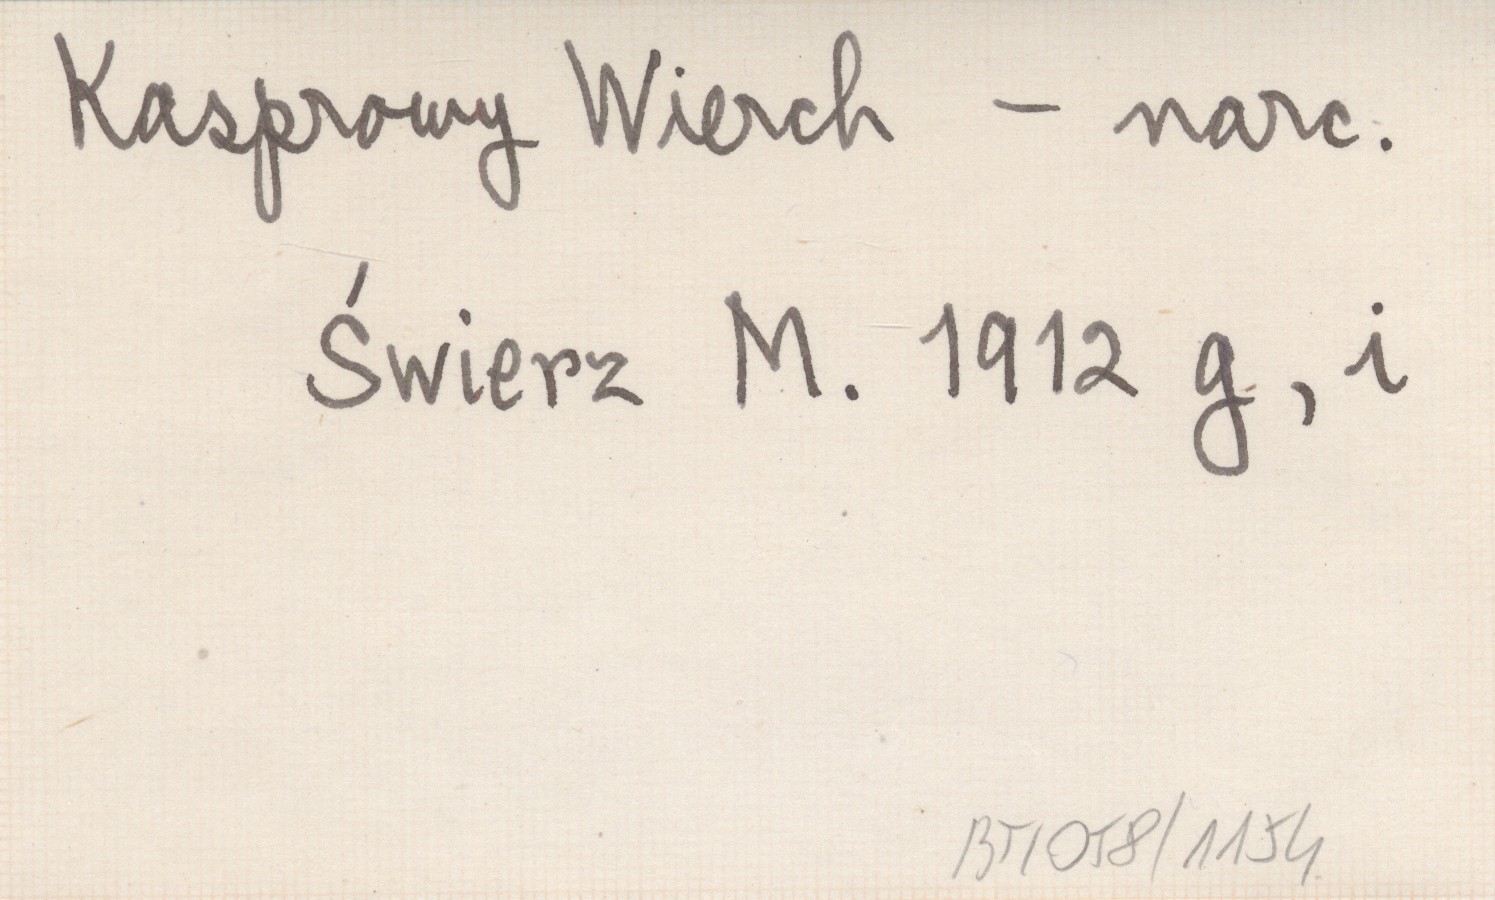 Kasprowy Wierch - narc.
Świerz M. 1912 g, i
BT/058/1154